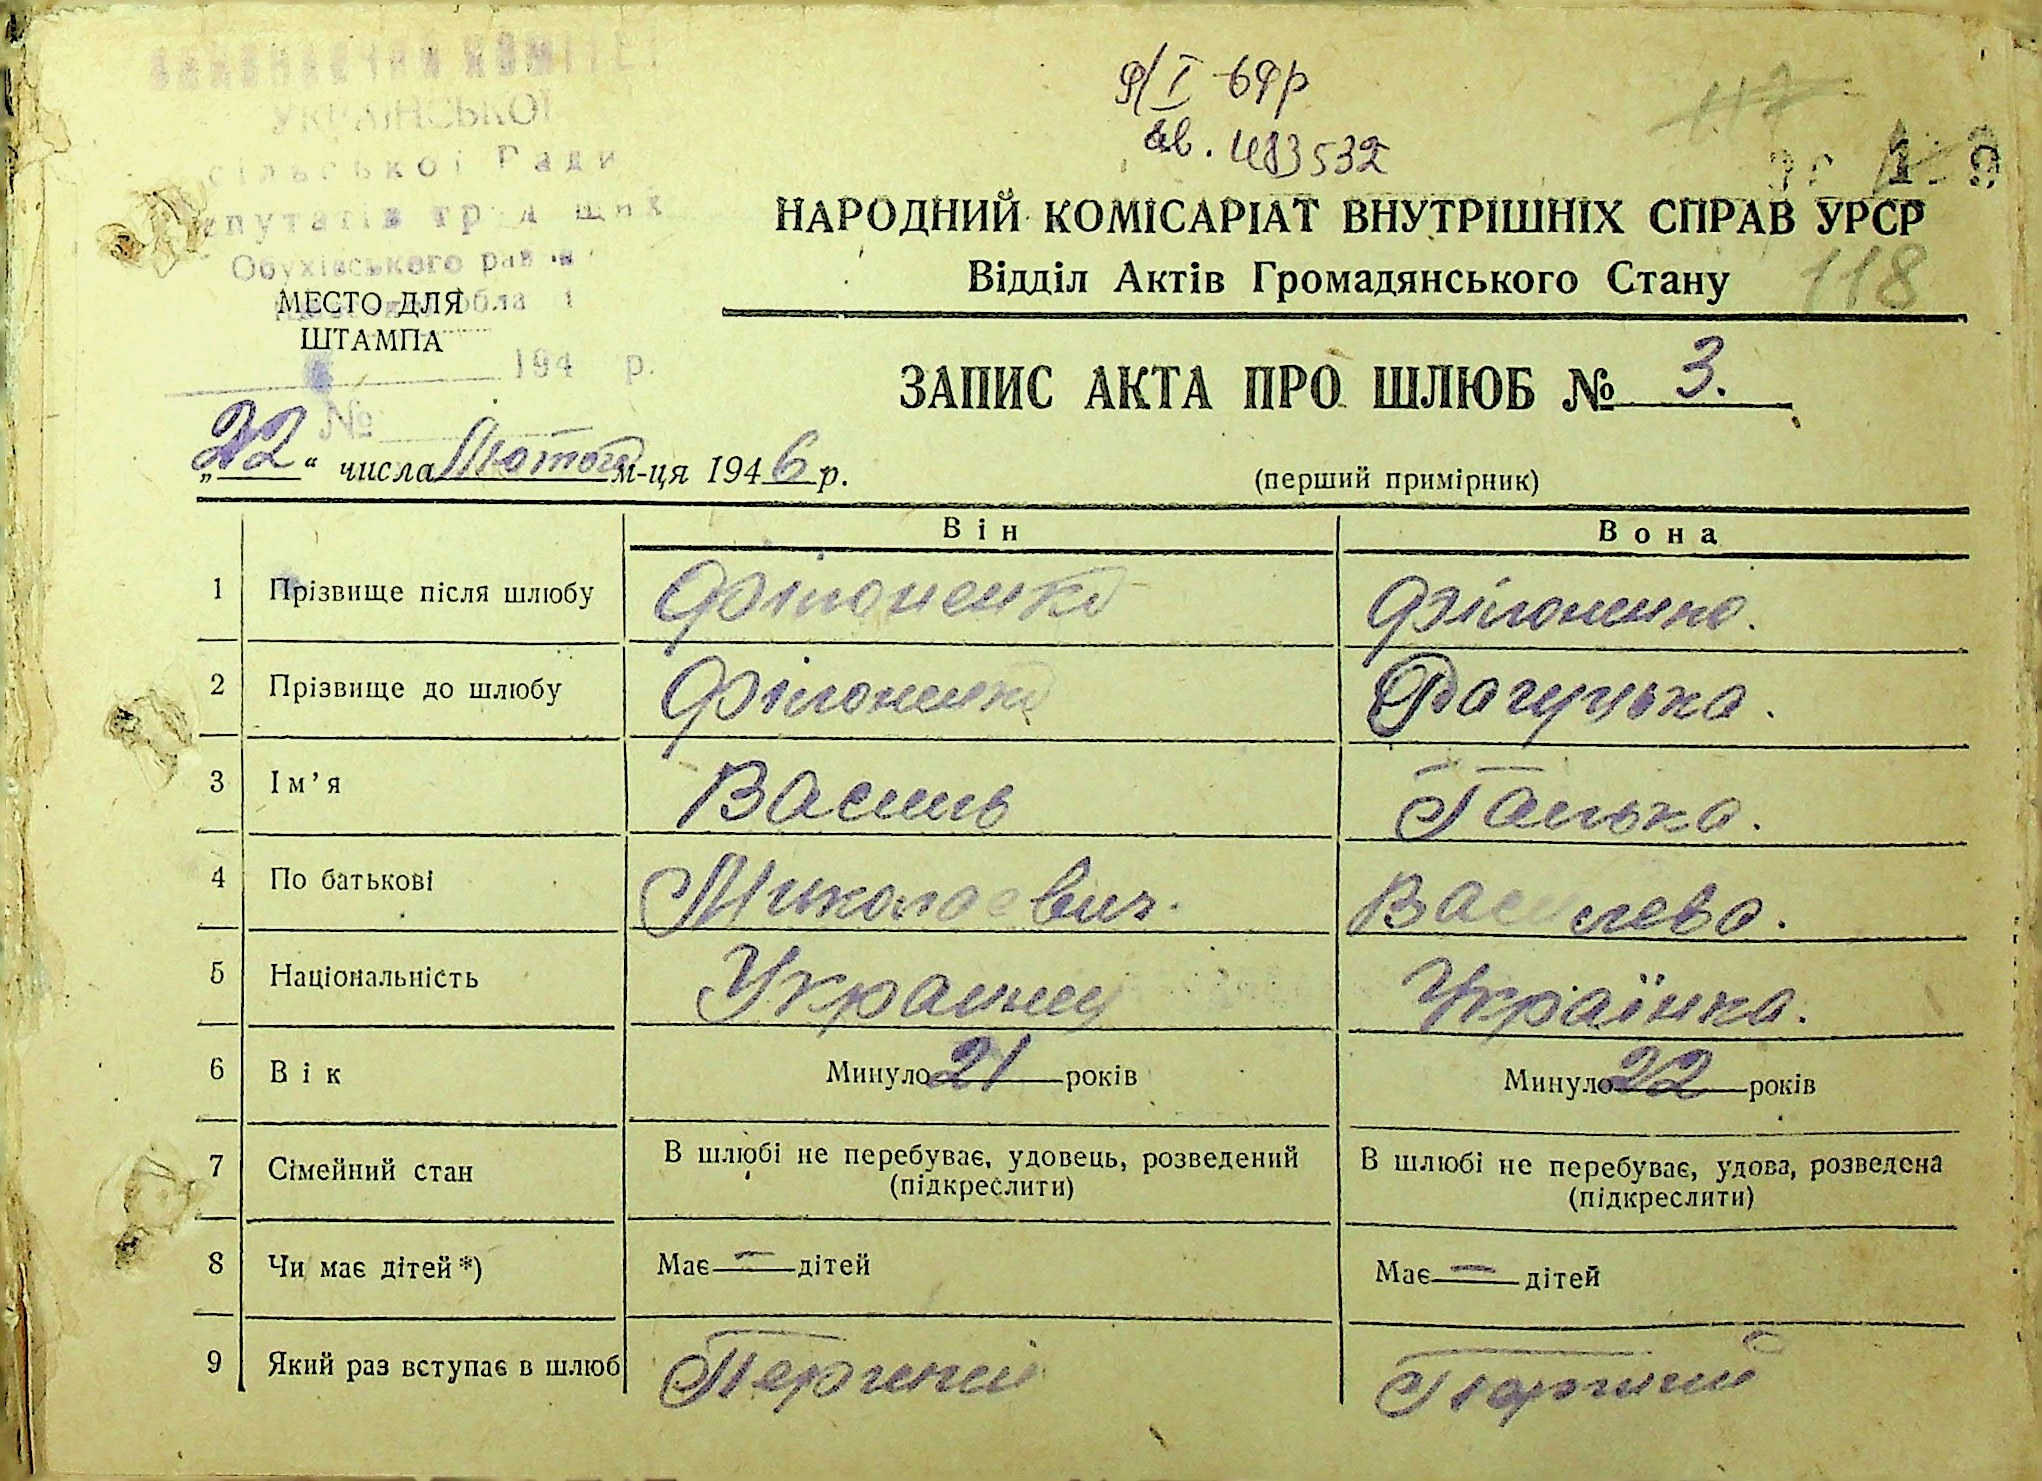 УКРАЇНСЬКОЇ
сільської Ради
Обухівського
МЕСТО ДЛЯ
ШТАМПА
194 р.
№
9/I 69р
ав. 483532
117
118
НАРОДНИЙ КОМІСАРІАТ ВНУТРІШНІХ СПРАВ УРСР
Відділ Актів Громадянського Стану
ЗАПИС АКТА ПРО ШЛЮБ № 3.
„22“ числа Лютого м-ця 1946 р.
(перший примірник)
Він Вона
1 Прізвище після шлюбу Філоненко Філоненко.
2 Прізвище до шлюбу Філоненко
3 Ім’я Василь Галька.
4 По батькові Миколаевич. Василева.
5 Національність Украинец Українка.
6 Вік Минуло 21 років Минуло 22 років
7 Сімейний стан В шлюбі не перебуває, удовець, розведений (підкреслити) В шлюбі не перебуває, удова, розведена (підкреслити)
8 Чи має дітей *) Має — дітей Має — дітей
9 Який раз вступає в шлюб Перший Перший